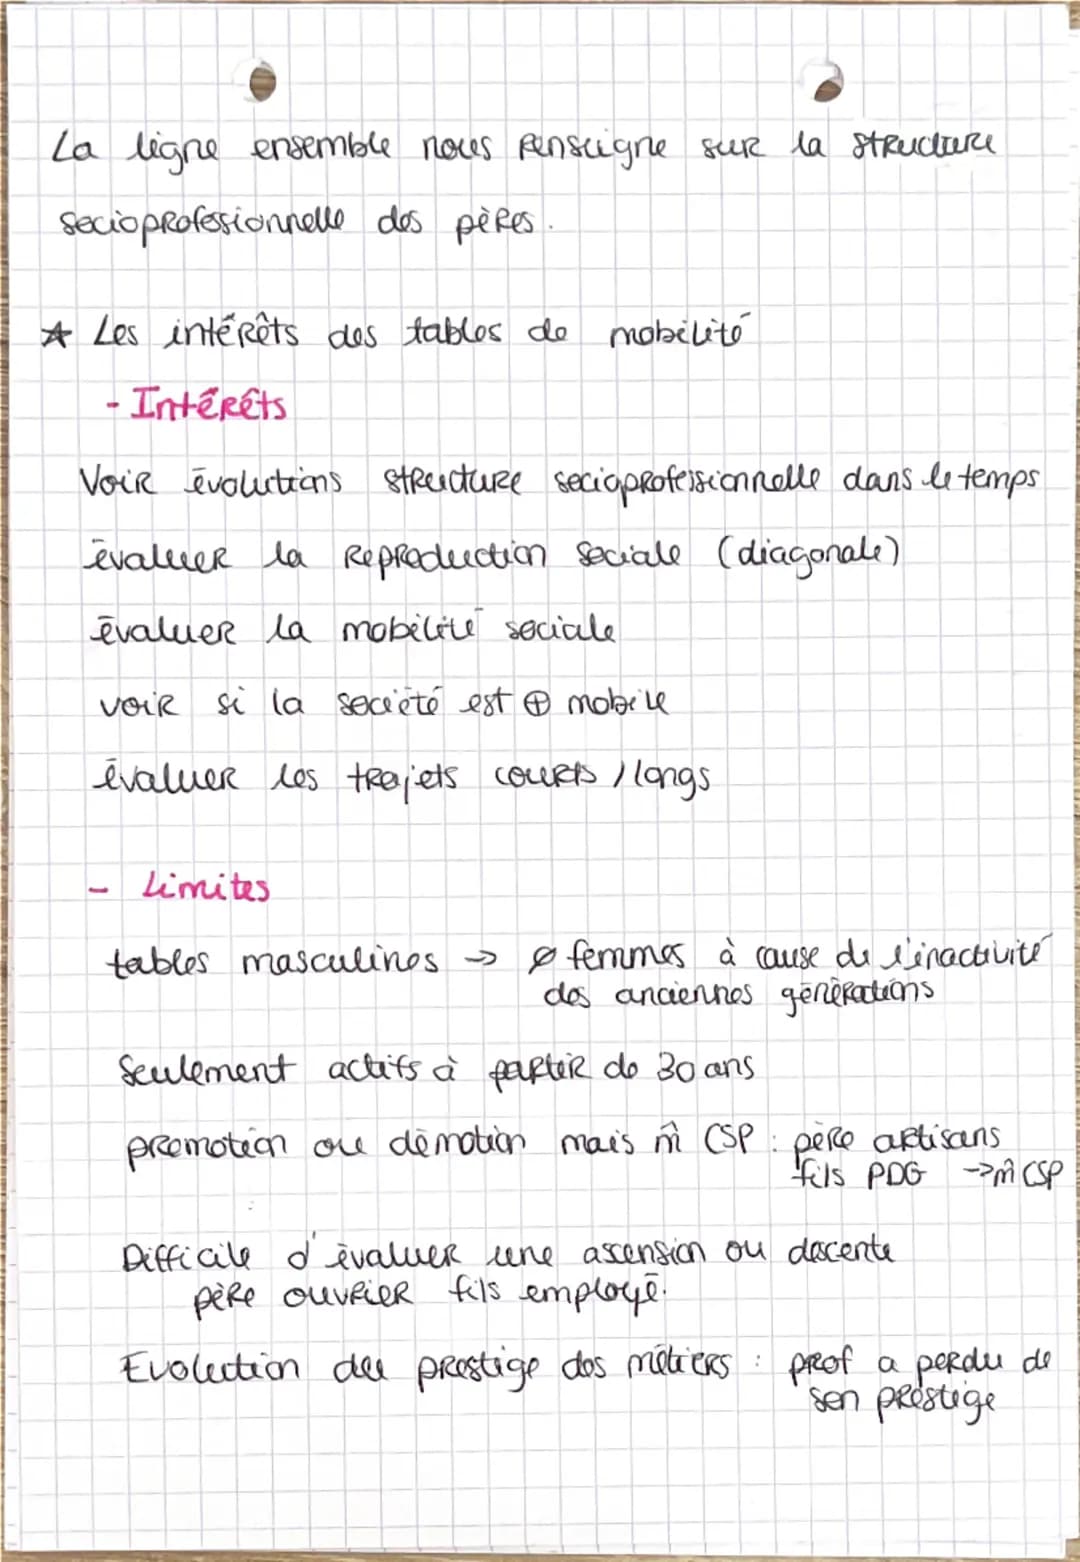 La ligne ensemble nous renseigne sur la structure
socioprofessionnelle des pères.
☆ Les intérêts des tables de mobilité
- Intérêts
Voir évolutions structure socioprofessionnelle dans le temps
évaluer la reproduction sociale (diagonale)
évaluer la mobilité sociale
voir si la société est ⊕ mobile
évaluer les trajets courts / longs
- Limites
tables masculines → ∅ femmes à cause de l'inactivité
des anciennes générations
Seulement actifs à partir de 30 ans
promotion ou démotion mais m̂ CSP : père artisans
fils PDG → m̂ CSP
Difficile d'évaluer une ascension ou descente
père ouvrier fils employé.
Evolution du prestige des métiers : prof a perdu de
son prestige